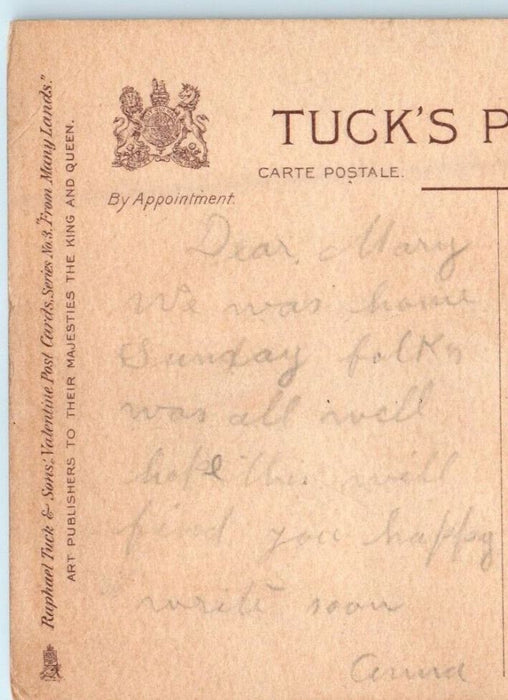 Raphael Tuck & Sons' "Valentine Post Cards, Series No. 3, From Many Lands."
ART PUBLISHERS TO THEIR MAJESTIES THE KING AND QUEEN.
By Appointment.
TUCK'S P
CARTE POSTALE.
Dear Mary
We was home
Sunday folks
was all well
hope this will
find you happy
write soon
Anna